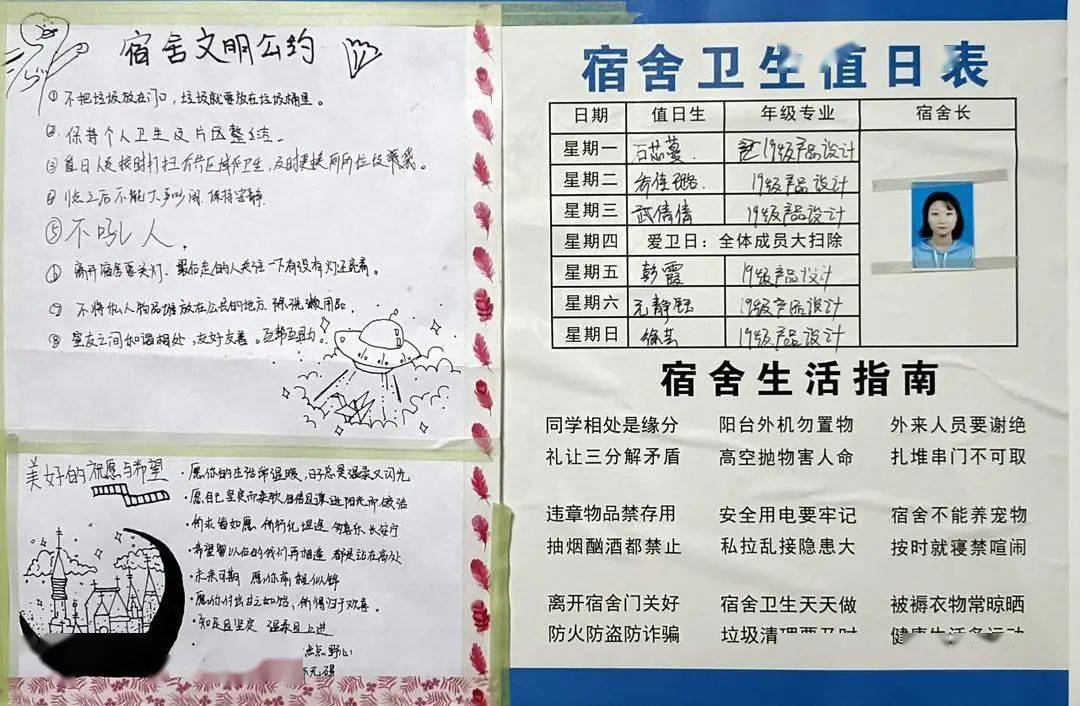 宿舍文明公约
①不把垃圾放在门口，垃圾就要放在垃圾桶里。
②保持个人卫生及片区整洁。
③值日人员按时打扫公共区域卫生，及时更换厕所垃圾袋。
④ 点之后不能大声吵闹，保持安静
⑤不吼人，
⑥离开宿舍要关灯，最后走的人关注一下有没有灯还亮着。
⑦不将私人物品堆放在公共的地方 除洗漱用品
⑧室友之间和谐相处，友好友善。互帮互助。
美好的祝愿与希望
·愿你的生活常温暖，日子总是温柔又闪光
·愿自己坚定而柔软 自信且谦逊 阳光而
·所求皆如愿 所行化坦途 多喜乐 长安宁
·希望 以后的我们再相逢 都是站在高处
·未来可期 愿你前程似锦
·愿你付出甘之如饴，所得归于欢喜。
·知足且坚定 温柔且上进
点点野心
宿舍卫生值日表
日期 值日生 年级专业 宿舍长
星期一 石芯蔓 19级产品设计
星期二 乔佳璐. 19级产品设计
星期三 武倩倩 19级产品设计
星期四 爱卫日：全体成员大扫除
星期五 彭霞 19级产品设计
星期六 元静钰 19级产品设计
星期日 徐芸 19级产品设计
宿舍生活指南
同学相处是缘分 阳台外机勿置物 外来人员要谢绝
礼让三分解矛盾 高空抛物害人命 扎堆串门不可取
违章物品禁存用 安全用电要牢记 宿舍不能养宠物
抽烟酗酒都禁止 私拉乱接隐患大 按时就寝禁喧闹
离开宿舍门关好 宿舍卫生天天做 被褥衣物常晾晒
防火防盗防诈骗 垃圾清理要及时 健康生活多运动